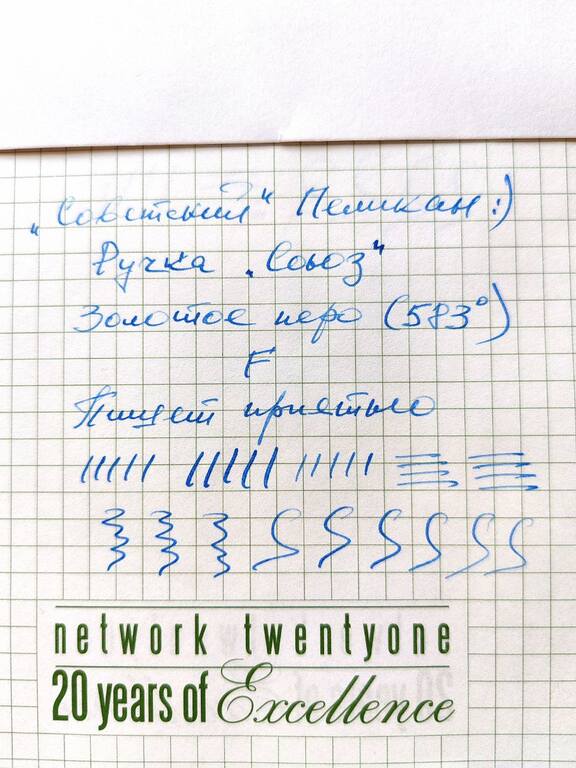 „Советский“ Пеликан :)
Ручка „Союз“
Золотое перо (583°)
F
Пишет приятно
network twentyone
20 years of Excellence